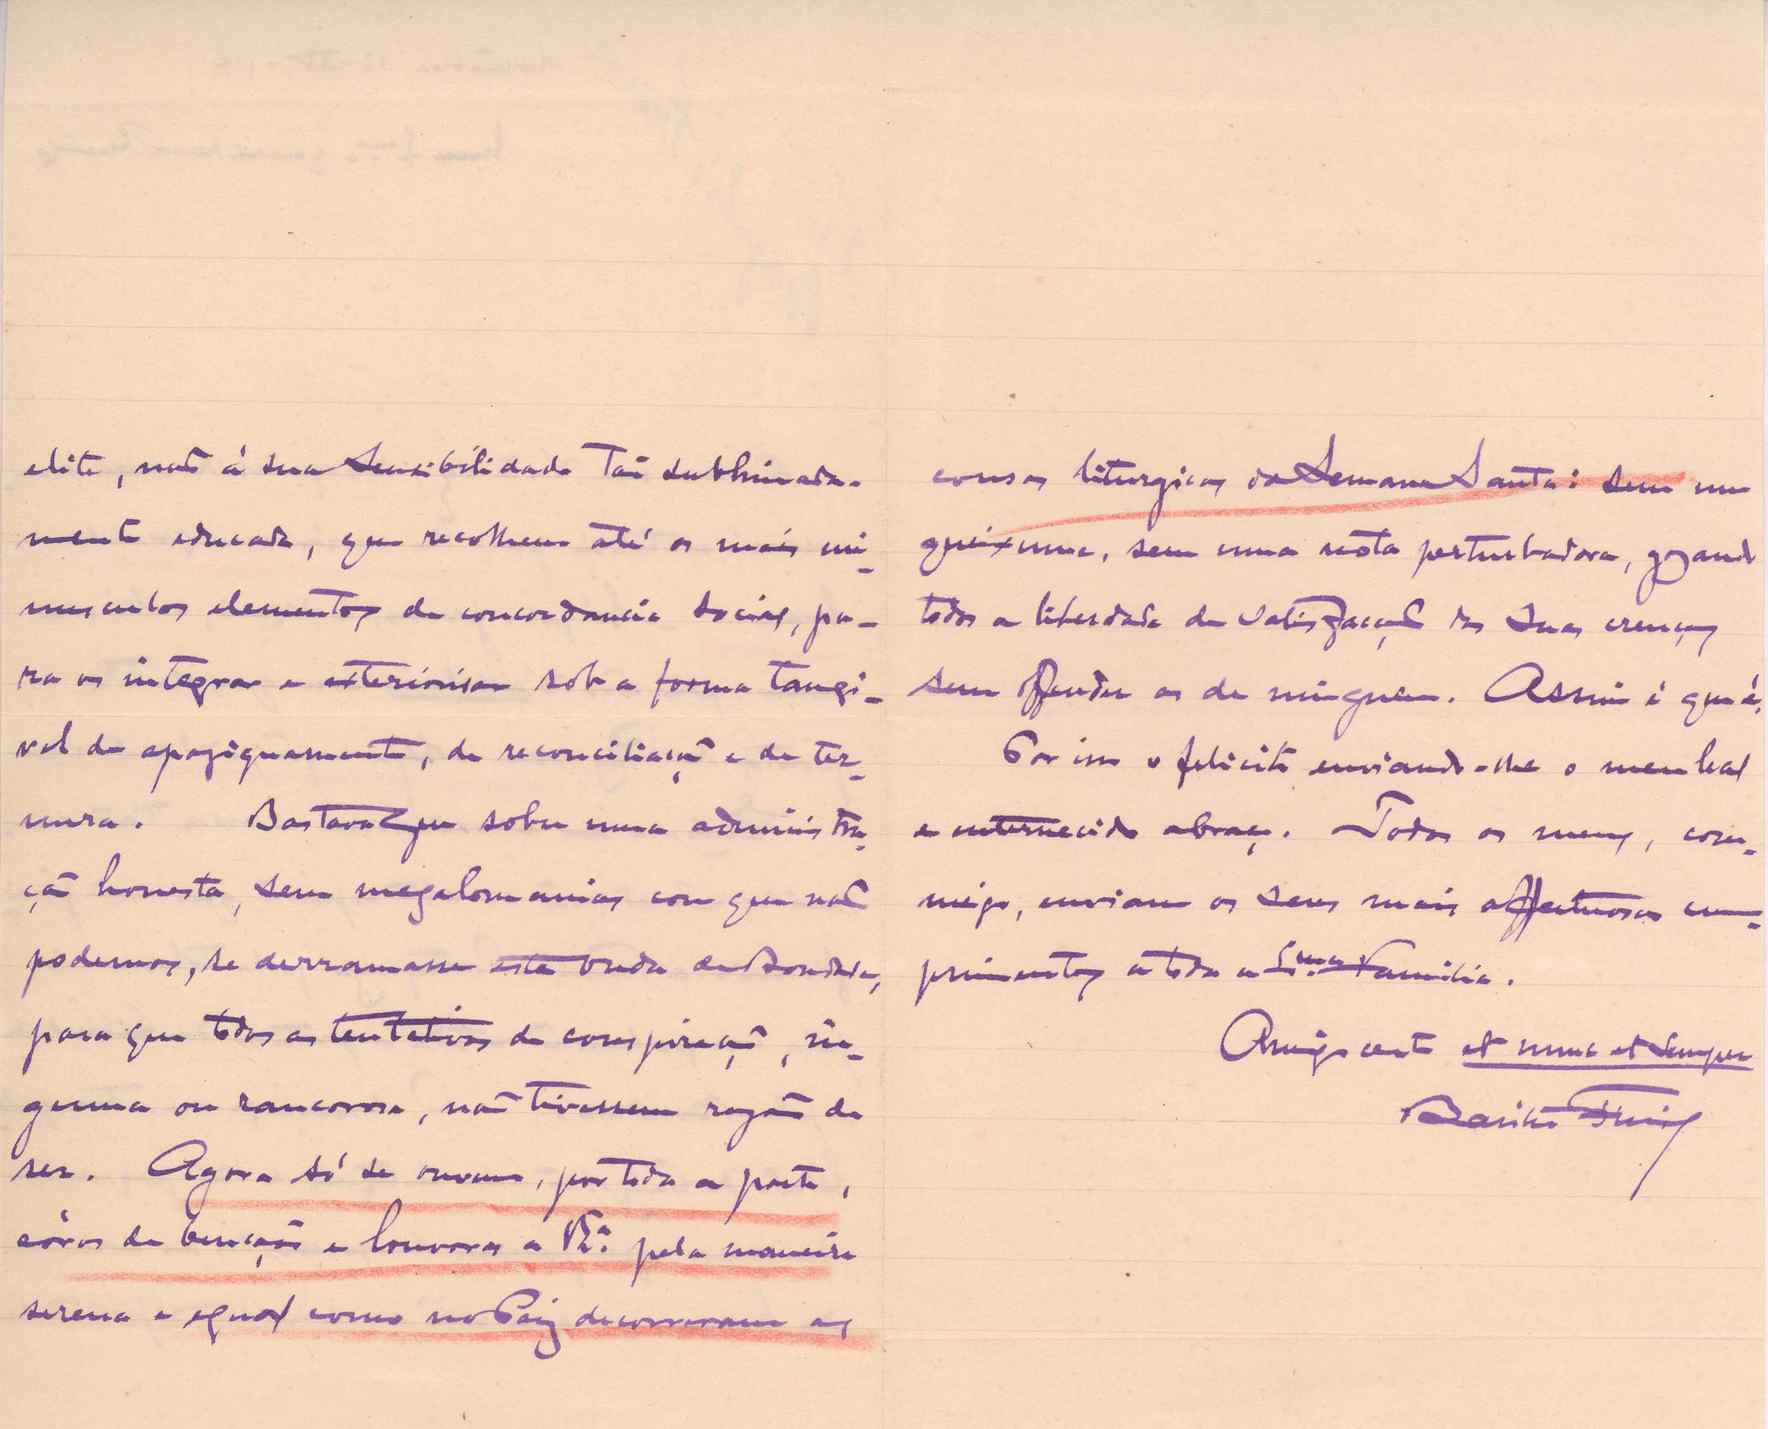 elite, não á sua sensibilidade tão sublimada-
mente educada, que recolheu até os mais mi-
nusculos elementos de concordancia social, pa-
ra os integrar e exteriorisar sob a forma tangi-
vel de apaziguamento, de reconciliação e de ter-
nura. Bastava que sobre uma administra-
ção honesta, sem megalomanias com que não
podemos, se derramasse esta onda de Bondade,
para que todas as tentativas de conspiração, in-
genua ou rancorosa, não tivessem razão de
ser. Agora só se ouvem, por toda a parte,
córos de bençãos e louvores a V. Exª. pela maneira
serena e egual como no Paiz decorreram as
cousas liturgicas da Semana Santa: sem um
queixume, sem uma nota perturbadora, gozando
todos a liberdade de satisfação das suas crenças
sem offender as de ninguem. Assim é que é.
Por isso o felicito enviando-lhe o meu leal
e enternecido abraço. Todos os meus, com-
migo, enviam os seus mais affectuosos cum-
primentos a toda a Exma Familia.
Amigo certo et nunc et semper